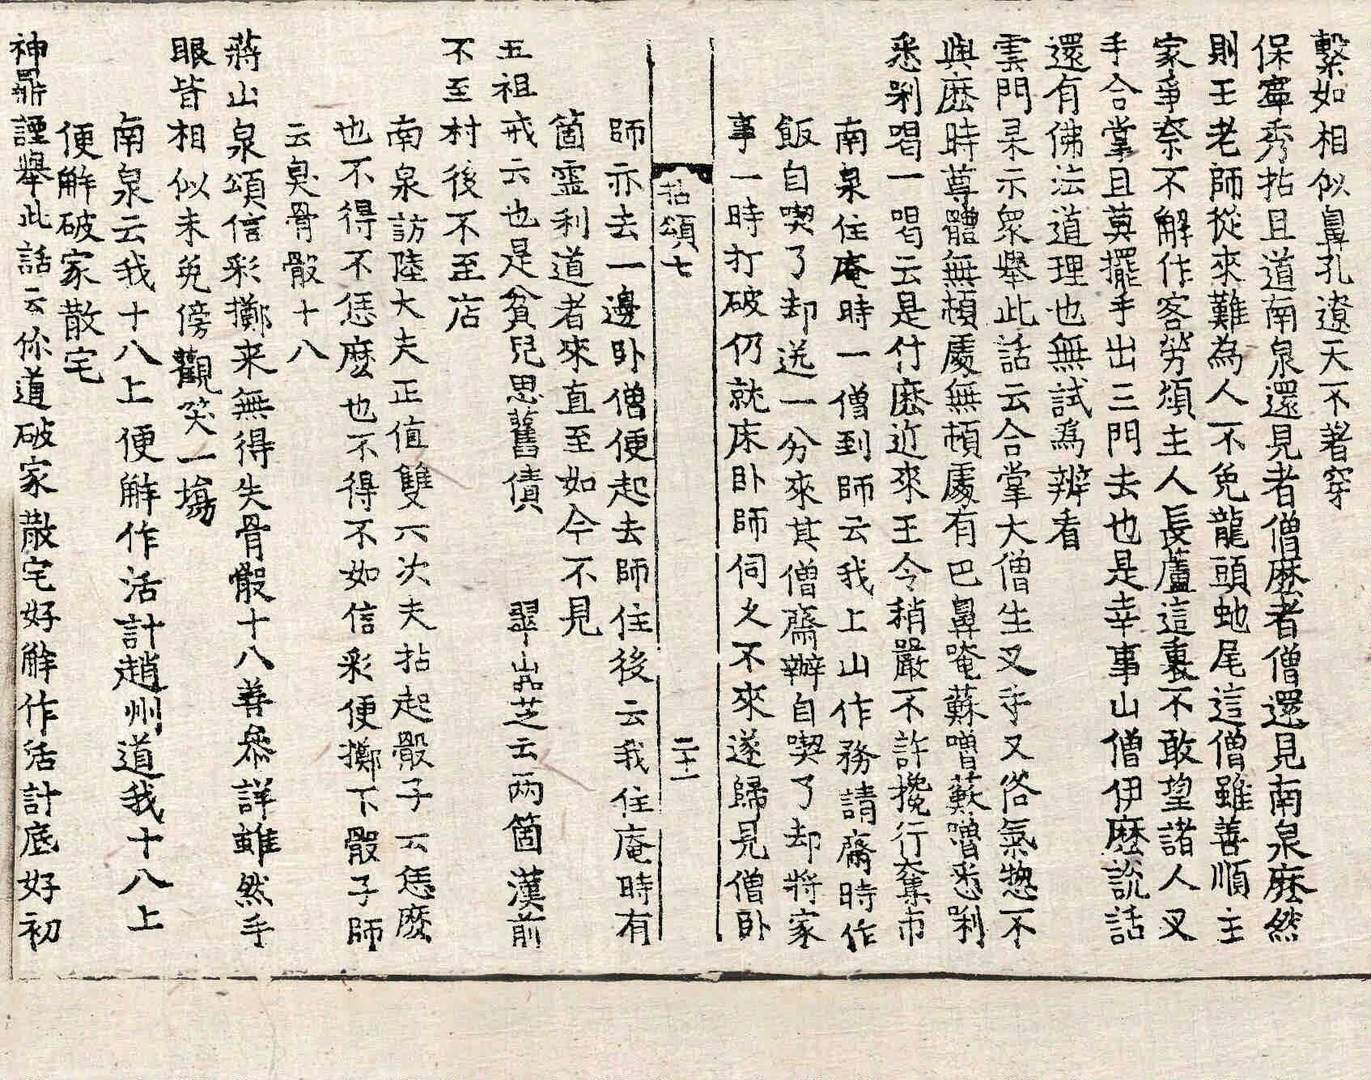 繫如相似鼻孔遼天不著穿
保寧秀拈且道南泉還見者僧麽者僧還見南泉麽然
則王老師從來難為人不免龍頭虵尾這僧雖善順主
家爭柰不解作客勞煩主人長蘆這裏不敢望諸人叉
手合掌且莫擺手出三門去也是幸事山僧伊麽說話
還有佛法道理也無試為辨看
雲門杲示衆舉此話云合掌大僧生叉手又俗氣惣不
與麽時尊體無頓處無頓處有巴鼻唵蘇嚕蘇嚕悉唎
悉唎喝一喝云是什麽近來王令稍嚴不許攙行奪市
南泉住庵時一僧到師云我上山作務請齋時作
飯自喫了却送一分來其僧齋辦自喫了却將家
事一時打破仍就床卧師伺久不來遂歸見僧卧
拈頌七 二十一
師亦去一邊卧僧便起去師住後云我住庵時有
箇霊利道者來直至如今不見
五祖戒云也是貧兒思舊債 翠嵓芝云两箇漢前
不至村後不至店
南泉訪陸大夫正值雙六次夫拈起骰子云恁麽
也不得不恁麽也不得不如信彩便擲下骰子師
云臭骨骰十八
蔣山泉頌信彩擲来無得失骨骰十八善叅詳雖然手
眼皆相似未免傍觀笑一塲
南泉云我十八上便解作活計趙州道我十八上
便解破家散宅
神鼎諲舉此話云你道破家散宅好解作活計底好初